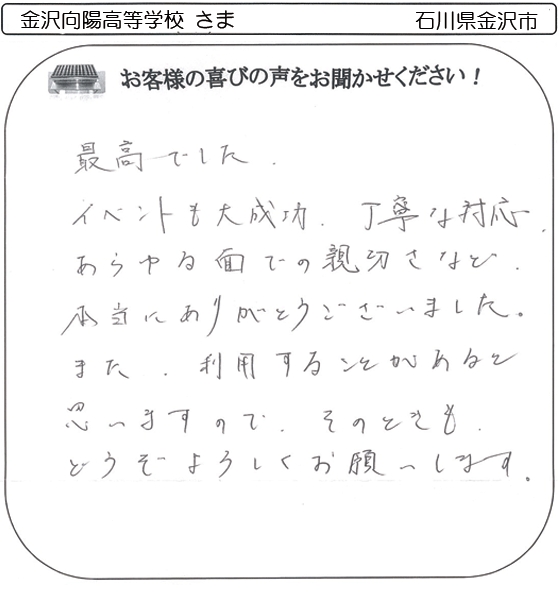 金沢向陽高等学校 さま
石川県金沢市
お客様の喜びの声をお聞かせください！
最高でした．
イベントも大成功．丁寧な対応．
あらゆる面での親切さなど．
本当にありがとうございました。
また．利用することがあると
思いますので．そのときも．
どうぞよろしくお願いします．